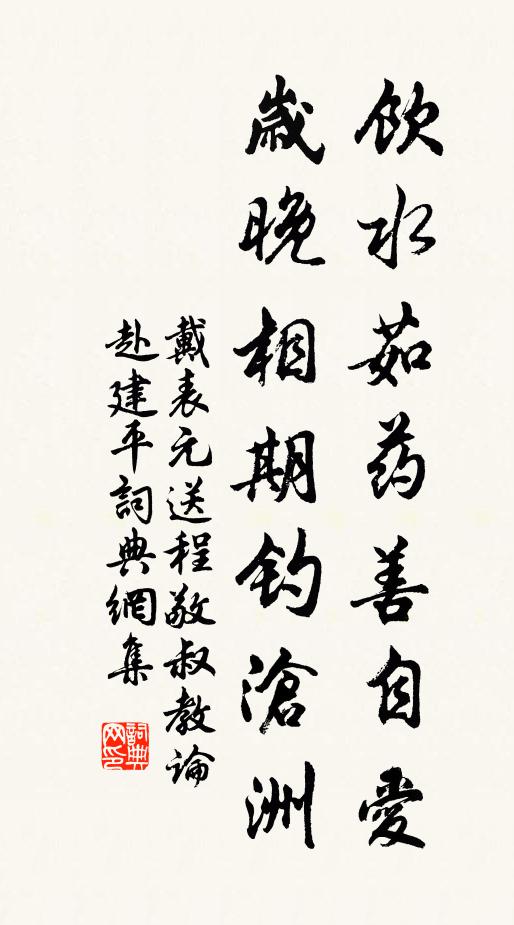 飲水茹药善自愛
歲晚相期釣滄洲
戴表元送程敬叔教論
赴建平詞典網集
詞典网印